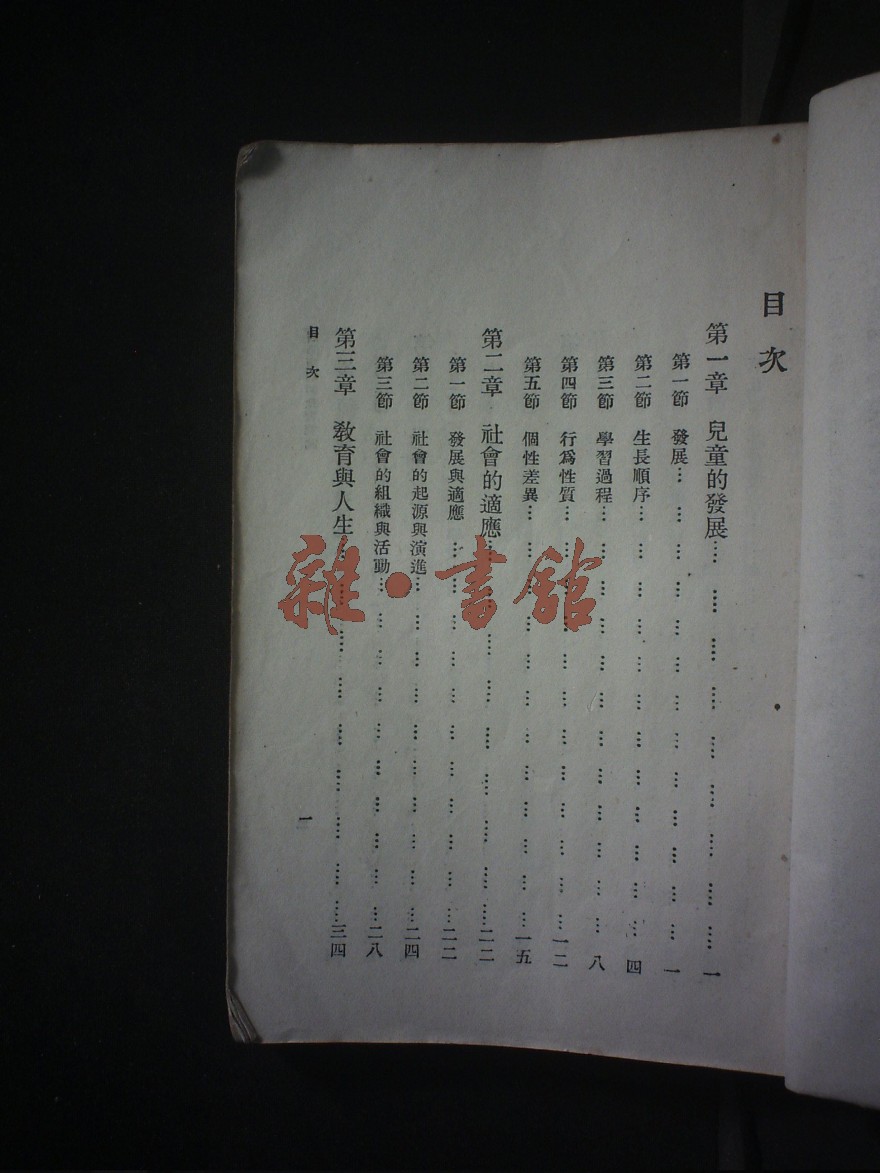 目次
第一章　兒童的發展…………………………一
第一節　發展…………………………一
第二節　生長順序…………………………四
第三節　學習過程…………………………八
第四節　行爲性質…………………………一二
第五節　個性差異…………………………一五
第二章　社會的適應…………………………二二
第一節　發展與適應…………………………二二
第二節　社會的起源與演進…………………………二四
第三節　社會的組織與活動…………………………二八
第三章　敎育與人生…………………………三四
目次
一
雜·書館